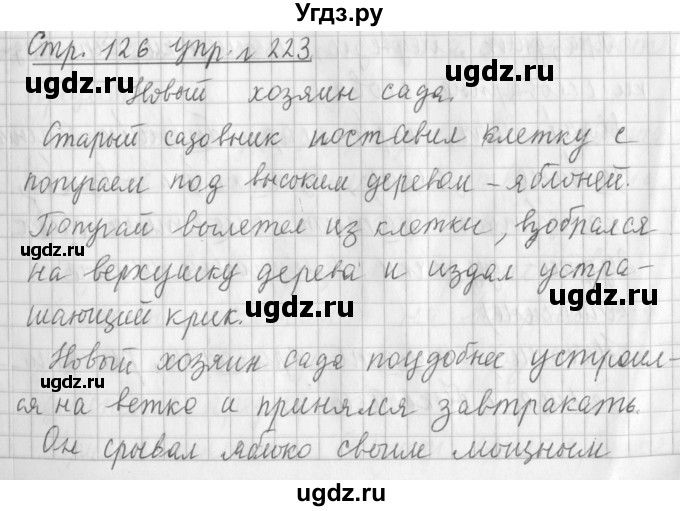 Угдз.ру
Стр. 126 упр. № 223
Новый хозяин сада.
Старый садовник поставил клетку с
попугаем под высоким деревом - яблоней.
Попугай вылетел из клетки, взобрался
на верхушку дерева и издал устра-
шающий крик.
Новый хозяин сада поудобнее устроил-
ся на ветке и принялся завтракать.
Он срывал яблоко своим мощным
ugdz.ru
ugdz.ru
ugdz.ru
ugdz.ru
ugdz.ru
ugdz.ru
ugdz.ru
ugdz.ru
ugdz.ru